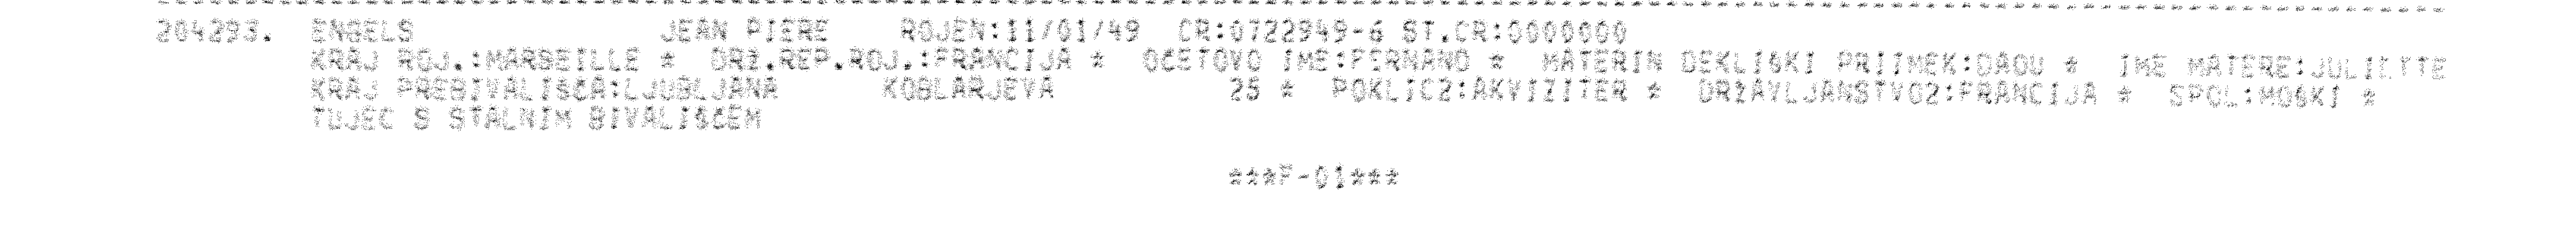 204293. ENGELS JEAN PIERE ROJEN:11/01/49 CR:0722949-6 ST.CR:0000000
KRAJ ROJ.:MARSEILLE * DRŽ.REP.ROJ.:FRANCIJA * OČETOVO IME:FERNAND * MATERIN DEKLIŠKI PRIIMEK:DAOU * IME MATERE:JULIETTE
KRAJ PREBIVALIŠČA:LJUBLJANA KOBLARJEVA 25 * POKLIC2:AKVIZITER * DRŽAVLJANSTVO2:FRANCIJA * SPOL:MOŠKI *
TUJEC S STALNIM BIVALIŠČEM
***F-01***